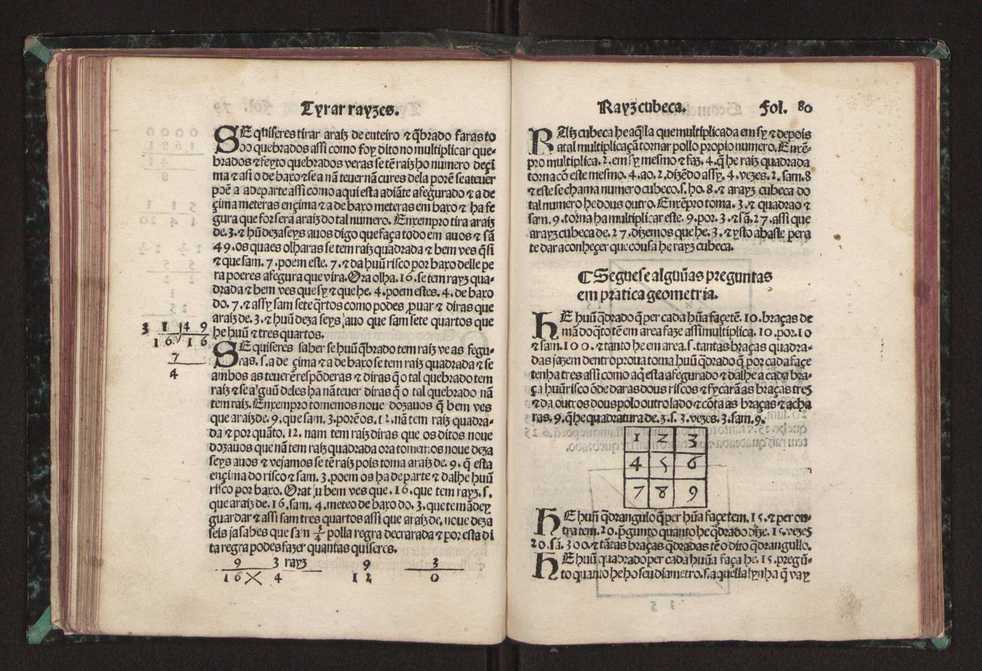 Tyrar rayzes.
SE quiseres tirar araiz de enteiro & q̃brado faras to
do quebrados assi como foy dito no multiplicar que-
brados & feyto quebrados veras se tẽ raiz ho numero deçi
ma & assi o de baxo & se a nã teuer nã cures dela porẽ se a teuer
põe a adeparte assi como aqui esta adiãte afegurado & a de
çima meteras ençima & a de baxo meteras em baxo & ha fe
gura que for sera araiz do tal numero. Enxempro tira araiz
de .3. & hũ dezaseys auos digo que faça todo em auos & sã
49. os quaes olharas se tem raiz quadrada & bem ves q̃ si
& que sam .7. poem este .7. & da huũ risco por baxo delle pe
ra poeres a fegura que vira. Ora olha .16. se tem rayz qua-
drada & bem ves que sy & que he .4. poem estes .4. de baxo
do .7. & assy sam sete q̃rtos como podes prouar & diras que
araiz de .3. & huũ deza seys auo que sam sete quartos que
he huũ & tres quartos.
3 1 | 49
16 | 16
7
4
SE quiseres saber se huũ q̃brado tem raiz ve as fegu-
ras .s. a de çima & a de baxo se tem raiz quadrada & se
ambos as teuerẽ respõderas & diras q̃ o tal quebrado tem
raiz & se alguũ deles ha nã teuer diras q̃ o tal quebrado nã
tem raiz. Enxempro tomemos noue dozauos q̃ bem ves
que araiz de .9. que sam .3. porẽ os .12. nã tem raiz quadra-
da & por quãto .12. nam tem raiz diras que os ditos noue
dozauos que nã tem raiz quadrada ora tomemos noue deza
seys auos & vejamos se tẽ raiz pois toma araiz de .9. q̃ esta
ençima do risco & sam .3. poem os ha de parte & dalhe huũ
risco por baxo. Ora tu bem ves que .16. que tem rayz .s.
que araiz de .16. sam .4. meteo de baxo do .3. que tem a de y
guardar & assi sam tres quartos assi que araiz de noue deza
seis ja sabes que sam 3/4 polla regra decrarada & por esta di
ta regra podes fazer quantas quiseres.
9 3 rayz 9 3
16 4 12 0
Rayz cubeca. Fol. 80
RAiz cubeca he aq̃lla que multiplicada em sy & depois
a tal multiplicaçã tornar pollo propio numero. Enxẽ-
pro multiplica .2. em sy mesmo & faz .4. q̃ he raiz quadrada
torna cõ este mesmo .4. ao .2. dizẽdo assy .4. vezes .2. sam .8
& este se chama numero cubeco .s. ho .8. & arayz cubeca do
tal numero he dous outro. Enxẽpro toma .3. & quadrao &
sam .9. torna ha multiplicar este .9. por .3. & sã .27. assi que
arayz cubeca de .27. dizemos que he .3. & ysto abaste pera
te dar a conheçer que cousa he rayz cubeca.
¶ Seguese alguũas preguntas
em pratica geometria.
HE huũ q̃drado q̃ per cada hũa façe tẽ .10. braças de
mãdo q̃to tẽ em area faze assi multiplica .10. por .10
& sam .100. & tanto he em area .s. tantas braças quadra-
das jazem dentro proua toma huũ q̃drado q̃ por cada façe
tenha tres assi como aq̃ esta afegurado & dalhe a cada bra-
ça huũ risco õde daras dous riscos & fycarã as braças tres
& da outros dous polo outro lado & cõta as braças & acha
ras .9. q̃ he quadratura de .3. .s. 3. vezes .3. sam .9.
1 2 3
4 5 6
7 8 9
HE huũ q̃drangulo q̃ per hũa façe tem .15. & per ou-
tra tem .20. p̃gunto quanto he q̃drado dize .15. vezes
20. sã .300. & tãtas braças q̃dradas tẽ o dito q̃drangullo.
HE huũ quadrado per cada huũa faça he .15. pregũ-
to quanto he ho seu diametro .s. aquella lynha q̃ vay